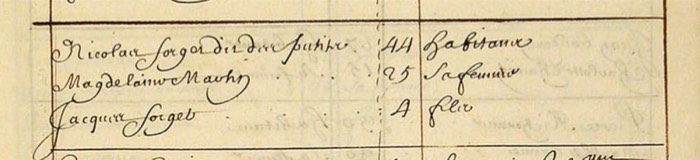 Nicolas forget dit des putits 44 habitant
Magdelaine Martin 25 Sa femme
Jacques forget 4 filz